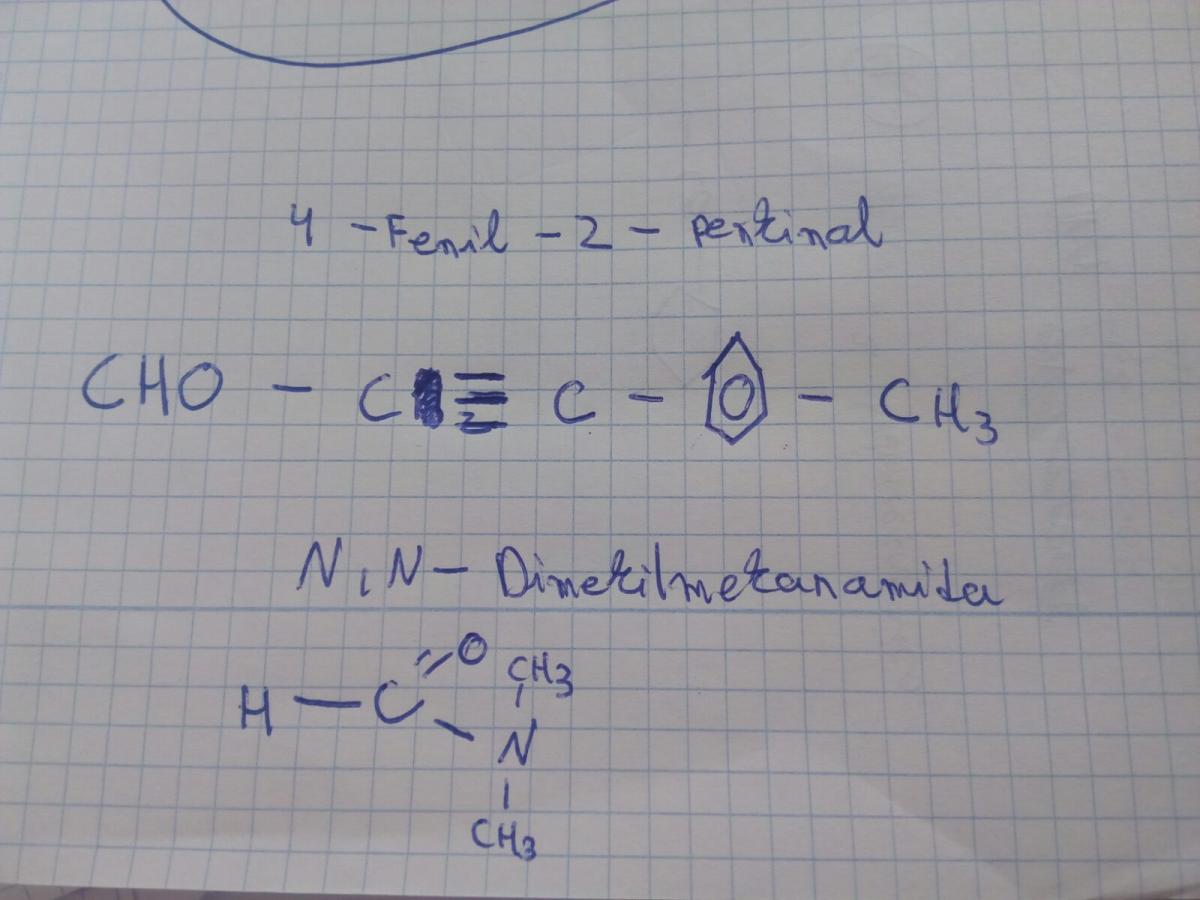 4 - Fenil - 2 - pentinal
CHO - C ≡ C - O - CH3
N,N - Dimetilmetanamida
H - C = O CH3
N
CH3